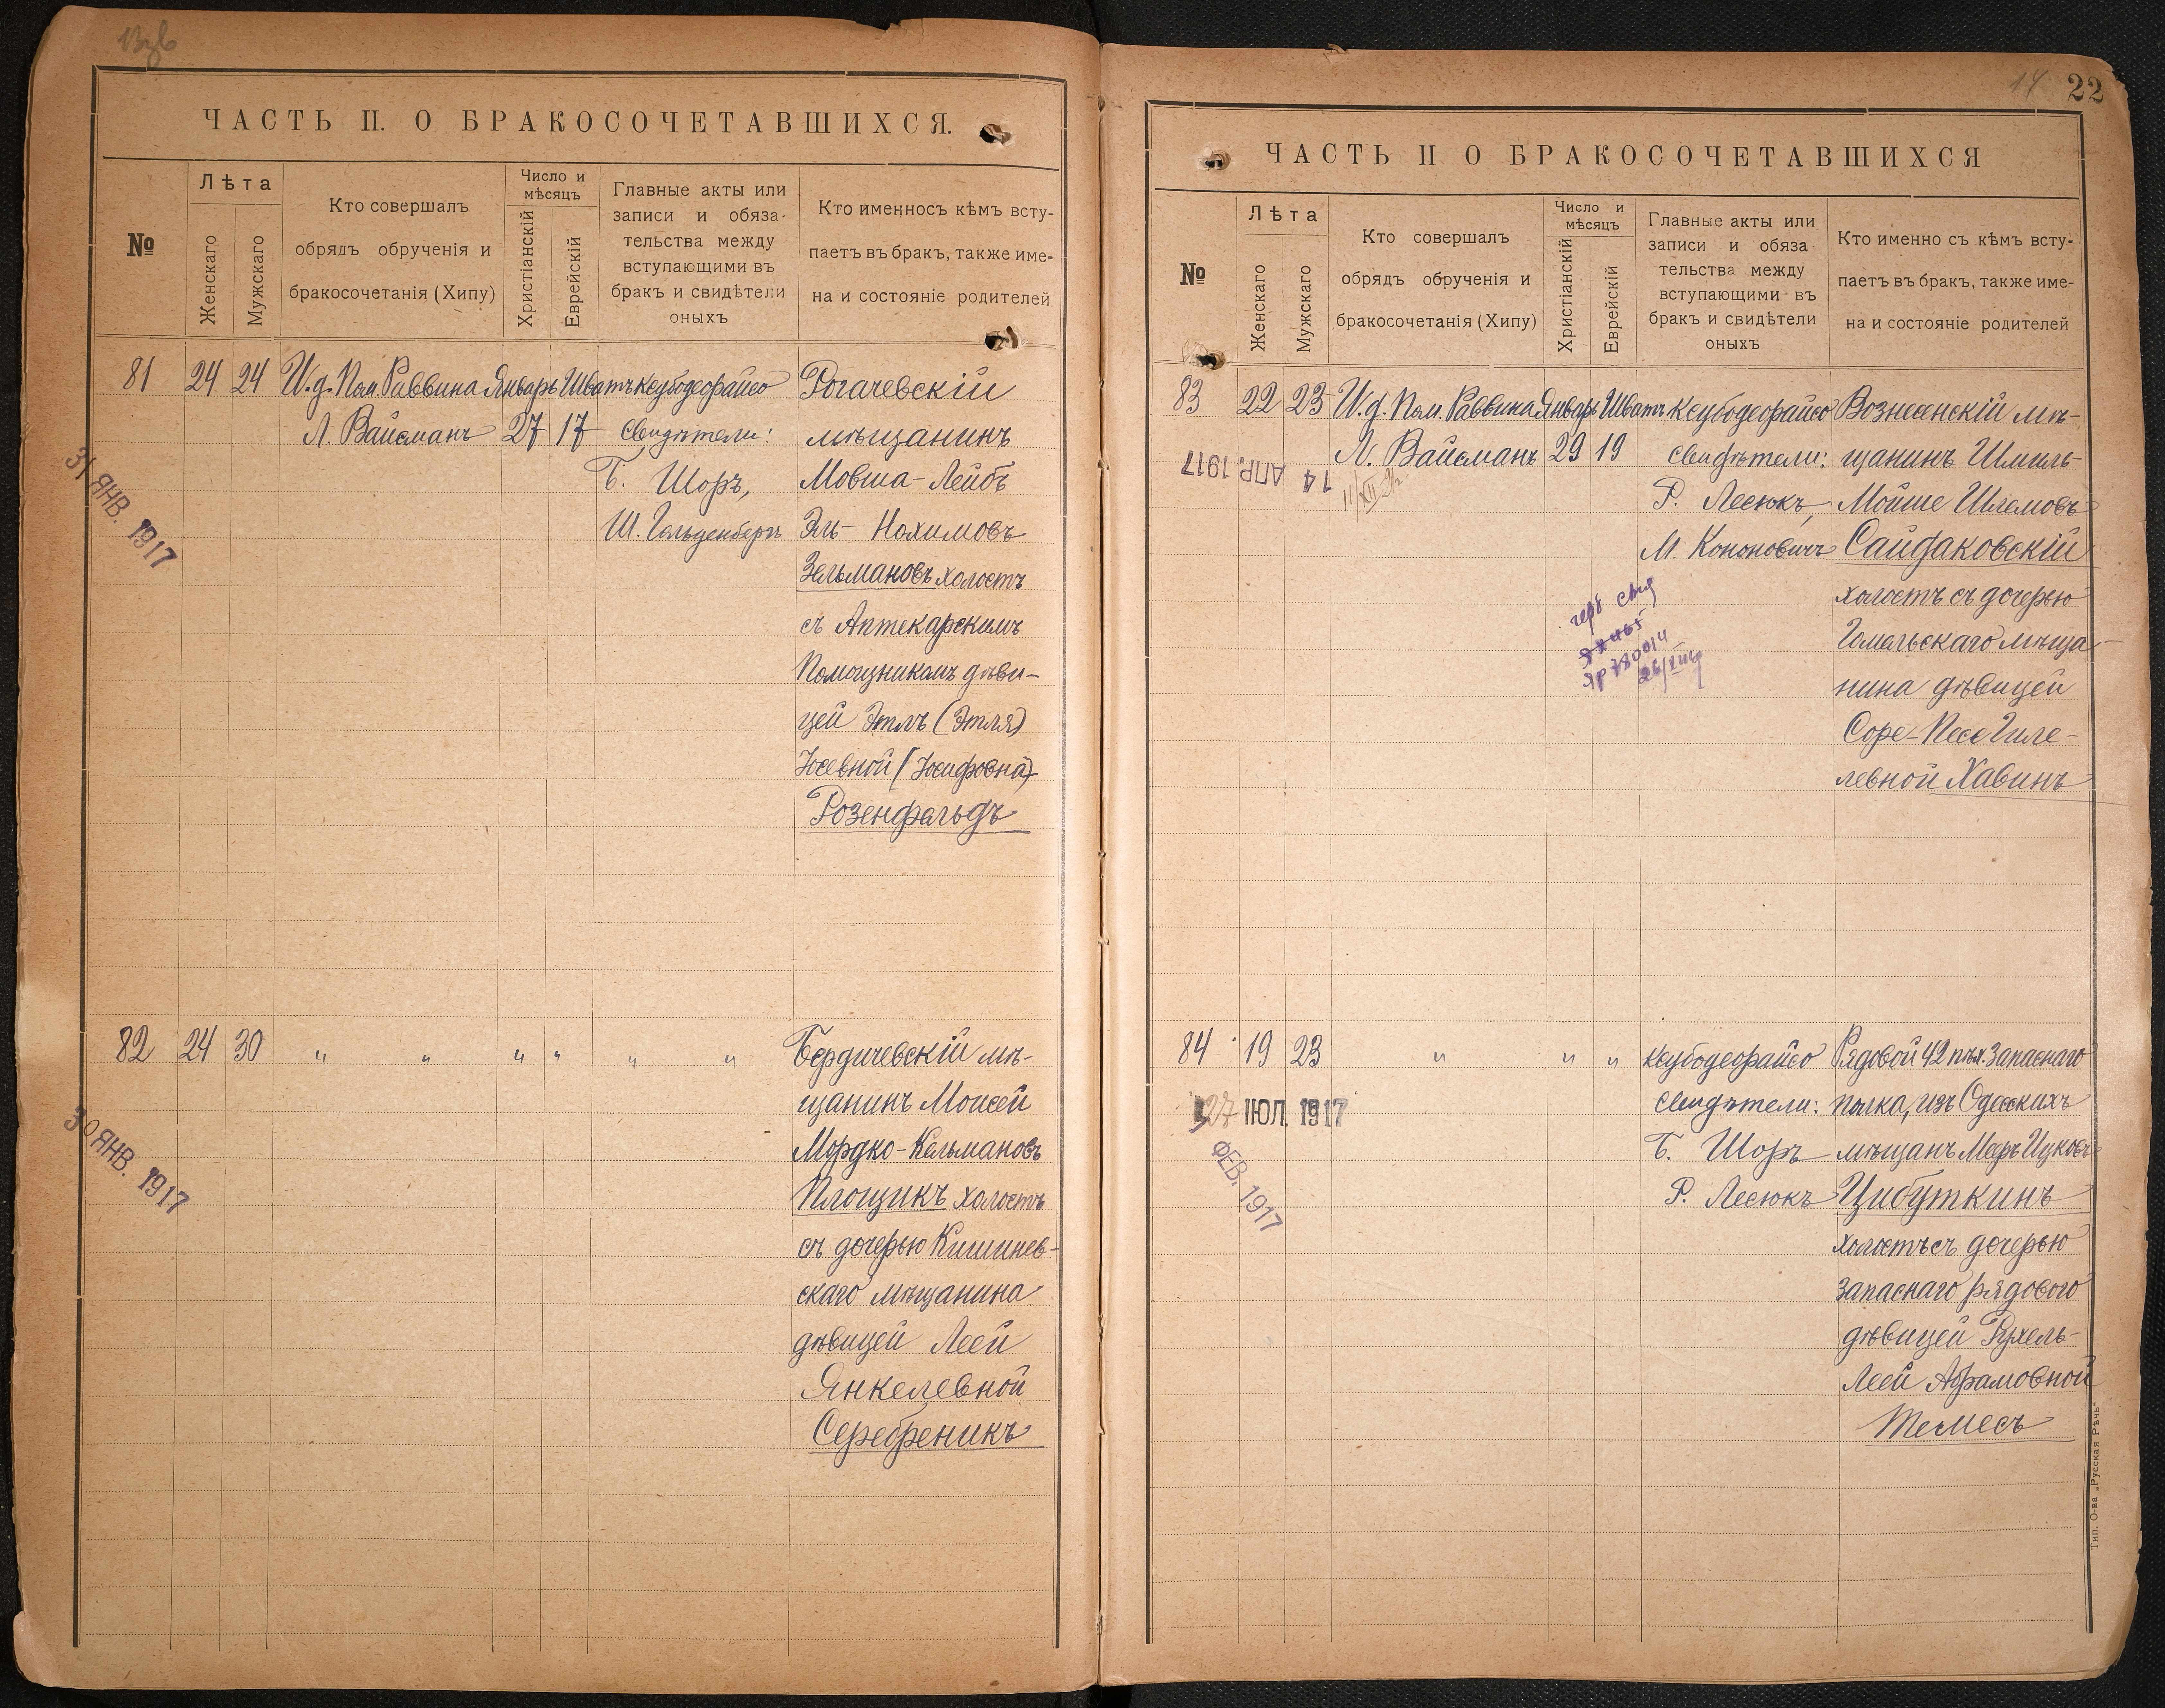 ЧАСТЬ II. О БРАКОСОЧЕТАВШИХСЯ.
№
Лѣта
Женскаго
Мужскаго
Кто совершалъ
обрядъ обрученія и
бракосочетанія (Хипу)
Число и
мѣсяцъ
Христіанскій
Еврейскій
Главные акты или
записи и обяза-
тельства между
вступающими въ
бракъ и свидѣтели
оныхъ
Кто именносъ кѣмъ всту-
паетъ въ бракъ, также име-
на и состояніе родителей
81 24 24 И.д. Пом. Раввина Январь Шватъ Ксубодеорайсо Рогачевскій
Л. Вайсманъ 27 17 свидѣтели: мѣщанинъ
31 ЯНВ. 1917
Б. Шоръ, Мовша-Лейбъ
Ш. Гольденбергъ Эль- Нохимовъ
Зельмановъ холостъ
съ Аптекарскимъ
Помощникомъ дѣви-
цей Этлъ (Этля)
Іосевной (Іосифовна)
Розенфельдъ
82 24 30 " " " " " " Бердичевскій мѣ-
щанинъ Моисей
30 ЯНВ. 1917
Мордко-Кельмановъ
Площикъ холостъ
съ дочерью Кишинев-
скаго мѣщанина
дѣвицей Леей
Янкелевной
Серебреникъ
14 22
ЧАСТЬ II О БРАКОСОЧЕТАВШИХСЯ
№
Лѣта
Женскаго
Мужскаго
Кто совершалъ
обрядъ обрученія и
бракосочетанія (Хипу)
Число и
мѣсяцъ
Христіанскій
Еврейскій
Главные акты или
записи и обяза
тельства между
вступающими въ
бракъ и свидѣтели
оныхъ
Кто именно съ кѣмъ всту-
паетъ въ бракъ, также име-
на и состояніе родителей
83 22 23 И.д. Пом. Раввина Январь Шватъ Ксубодеорайсо Вознесенскій мѣ-
Л. Вайсманъ 29 19 свидѣтели: щанинъ Шмиль-
14 АПР. 1917
Р. Лесюкъ, Мойше Шлемовъ
М. Кононовичъ Сайдаковскій
холостъ съ дочерью
Гомельскаго мѣща-
нина дѣвицей
Соре-Песе Гиле-
левной Хавинъ
84 19 23 " " " Ксубодеорайсо Рядовой 42 пѣх. Запаснаго
27 ІЮЛ. 1917
свидѣтели: полка, изъ Одесскихъ
ФЕВ. 1917
Б. Шоръ мѣщанъ Меръ Ицковъ
Р. Лесюкъ Цибуткинъ
холостъ съ дочерью
запаснаго рядового
дѣвицей Рухель-
Леей Абрамовной
Темесъ
Тип. О-ва „Русская Рѣчь"